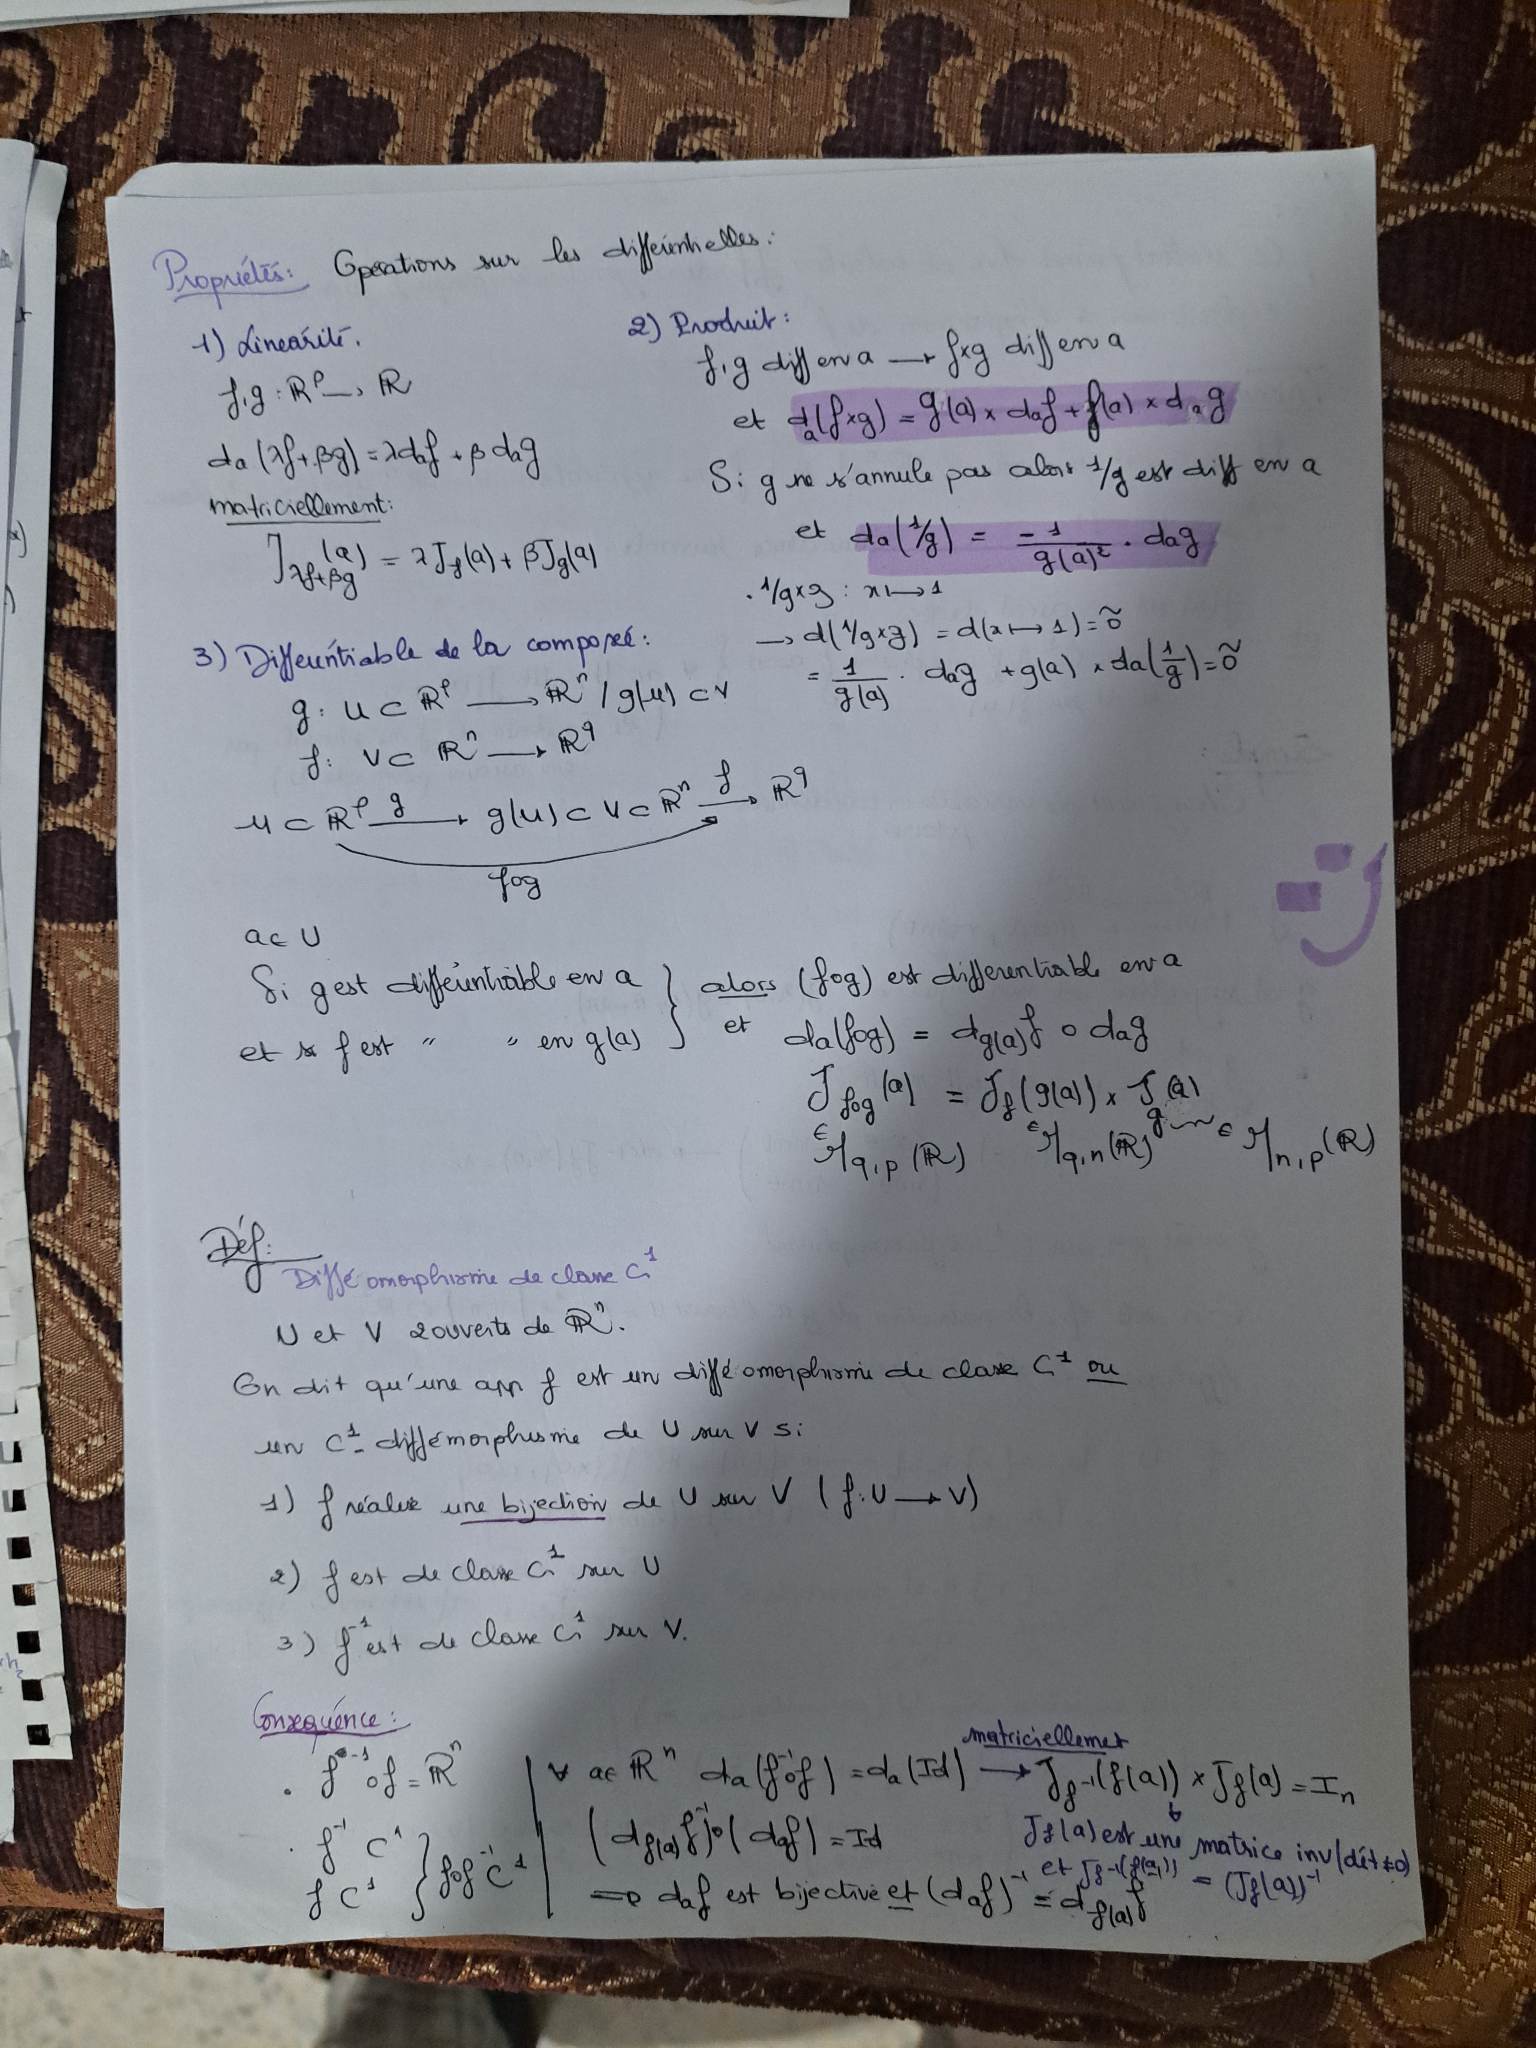 Propriétés: Opérations sur les différentielles:
1) Linéarité.
f,g : ℝᵖ → ℝ
da(λf+βg) = λdaf + βdag
matriciellement:
J_{λf+βg}(a) = λJ_f(a) + βJ_g(a)
2) Produit:
f,g diff en a → f×g diff en a
et d_a(f×g) = g(a) × daf + f(a) × dag
Si g ne s'annule pas alors 1/g est diff en a
et da(1/g) = -1/g(a)² . dag
. 1/g×g : x ↦ 1
→ d(1/g×g) = d(x ↦ 1) = õ
= 1/g(a) . dag + g(a) × da(1/g) = õ
3) Différentiable de la composée:
g: U ⊂ ℝᵖ → ℝⁿ / g(U) ⊂ V
f: V ⊂ ℝⁿ → ℝ^q
U ⊂ ℝᵖ —g→ g(U) ⊂ V ⊂ ℝⁿ —f→ ℝ^q
fog
a ∈ U
Si g est différentiable en a } alors (fog) est differentiable en a
et f est " " en g(a) } et da(fog) = d_{g(a)}f o dag
J_{fog}(a) = J_f(g(a)) × J_g(a)
∈ M_{q,p}(ℝ) ∈ M_{q,n}(ℝ) ∈ M_{n,p}(ℝ)
Déf:
Difféomorphisme de classe C¹
U et V 2 ouverts de ℝⁿ.
On dit qu'une app f est un difféomorphisme de classe C¹ ou
un C¹-difféomorphisme de U sur V si
1) f réalise une bijection de U sur V (f: U → V)
2) f est de classe C¹ sur U
3) f⁻¹ est de classe C¹ sur V.
Conséquence:
. f⁻¹ o f = ℝⁿ
. f⁻¹ C¹
f C¹ } fof⁻¹ C¹
∀ a ∈ ℝⁿ da(f⁻¹of) = da(Id) matriciellemet → J_{f⁻¹}(f(a)) × J_f(a) = I_n
(d_{f(a)}f)⁻¹ o (daf) = Id
J_f(a) est une matrice inv (dét ≠ 0)
et J_{f⁻¹}(f(a)) = (J_f(a))⁻¹
⇒ daf est bijective et (daf)⁻¹ = d_{f(a)}f